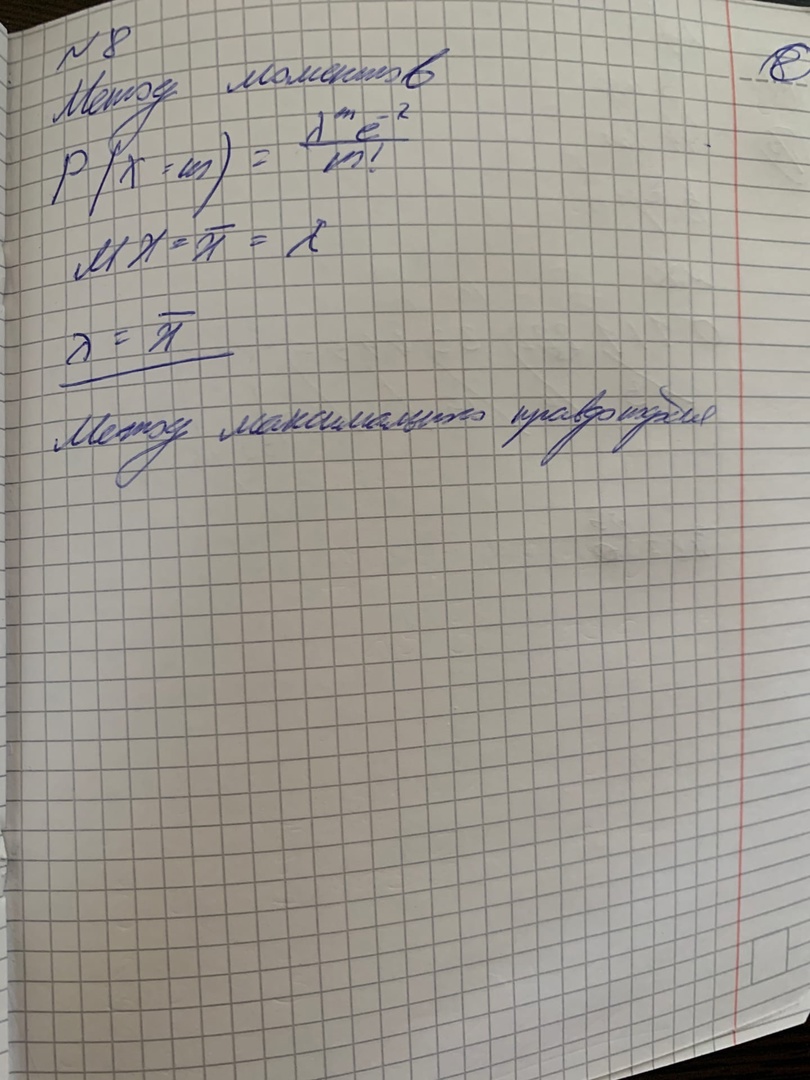 №8
Метод моментов
P(X=m) = λ^m e^-λ / m!
MX = x̄ = λ
λ = x̄
Метод максимального правдоподобия